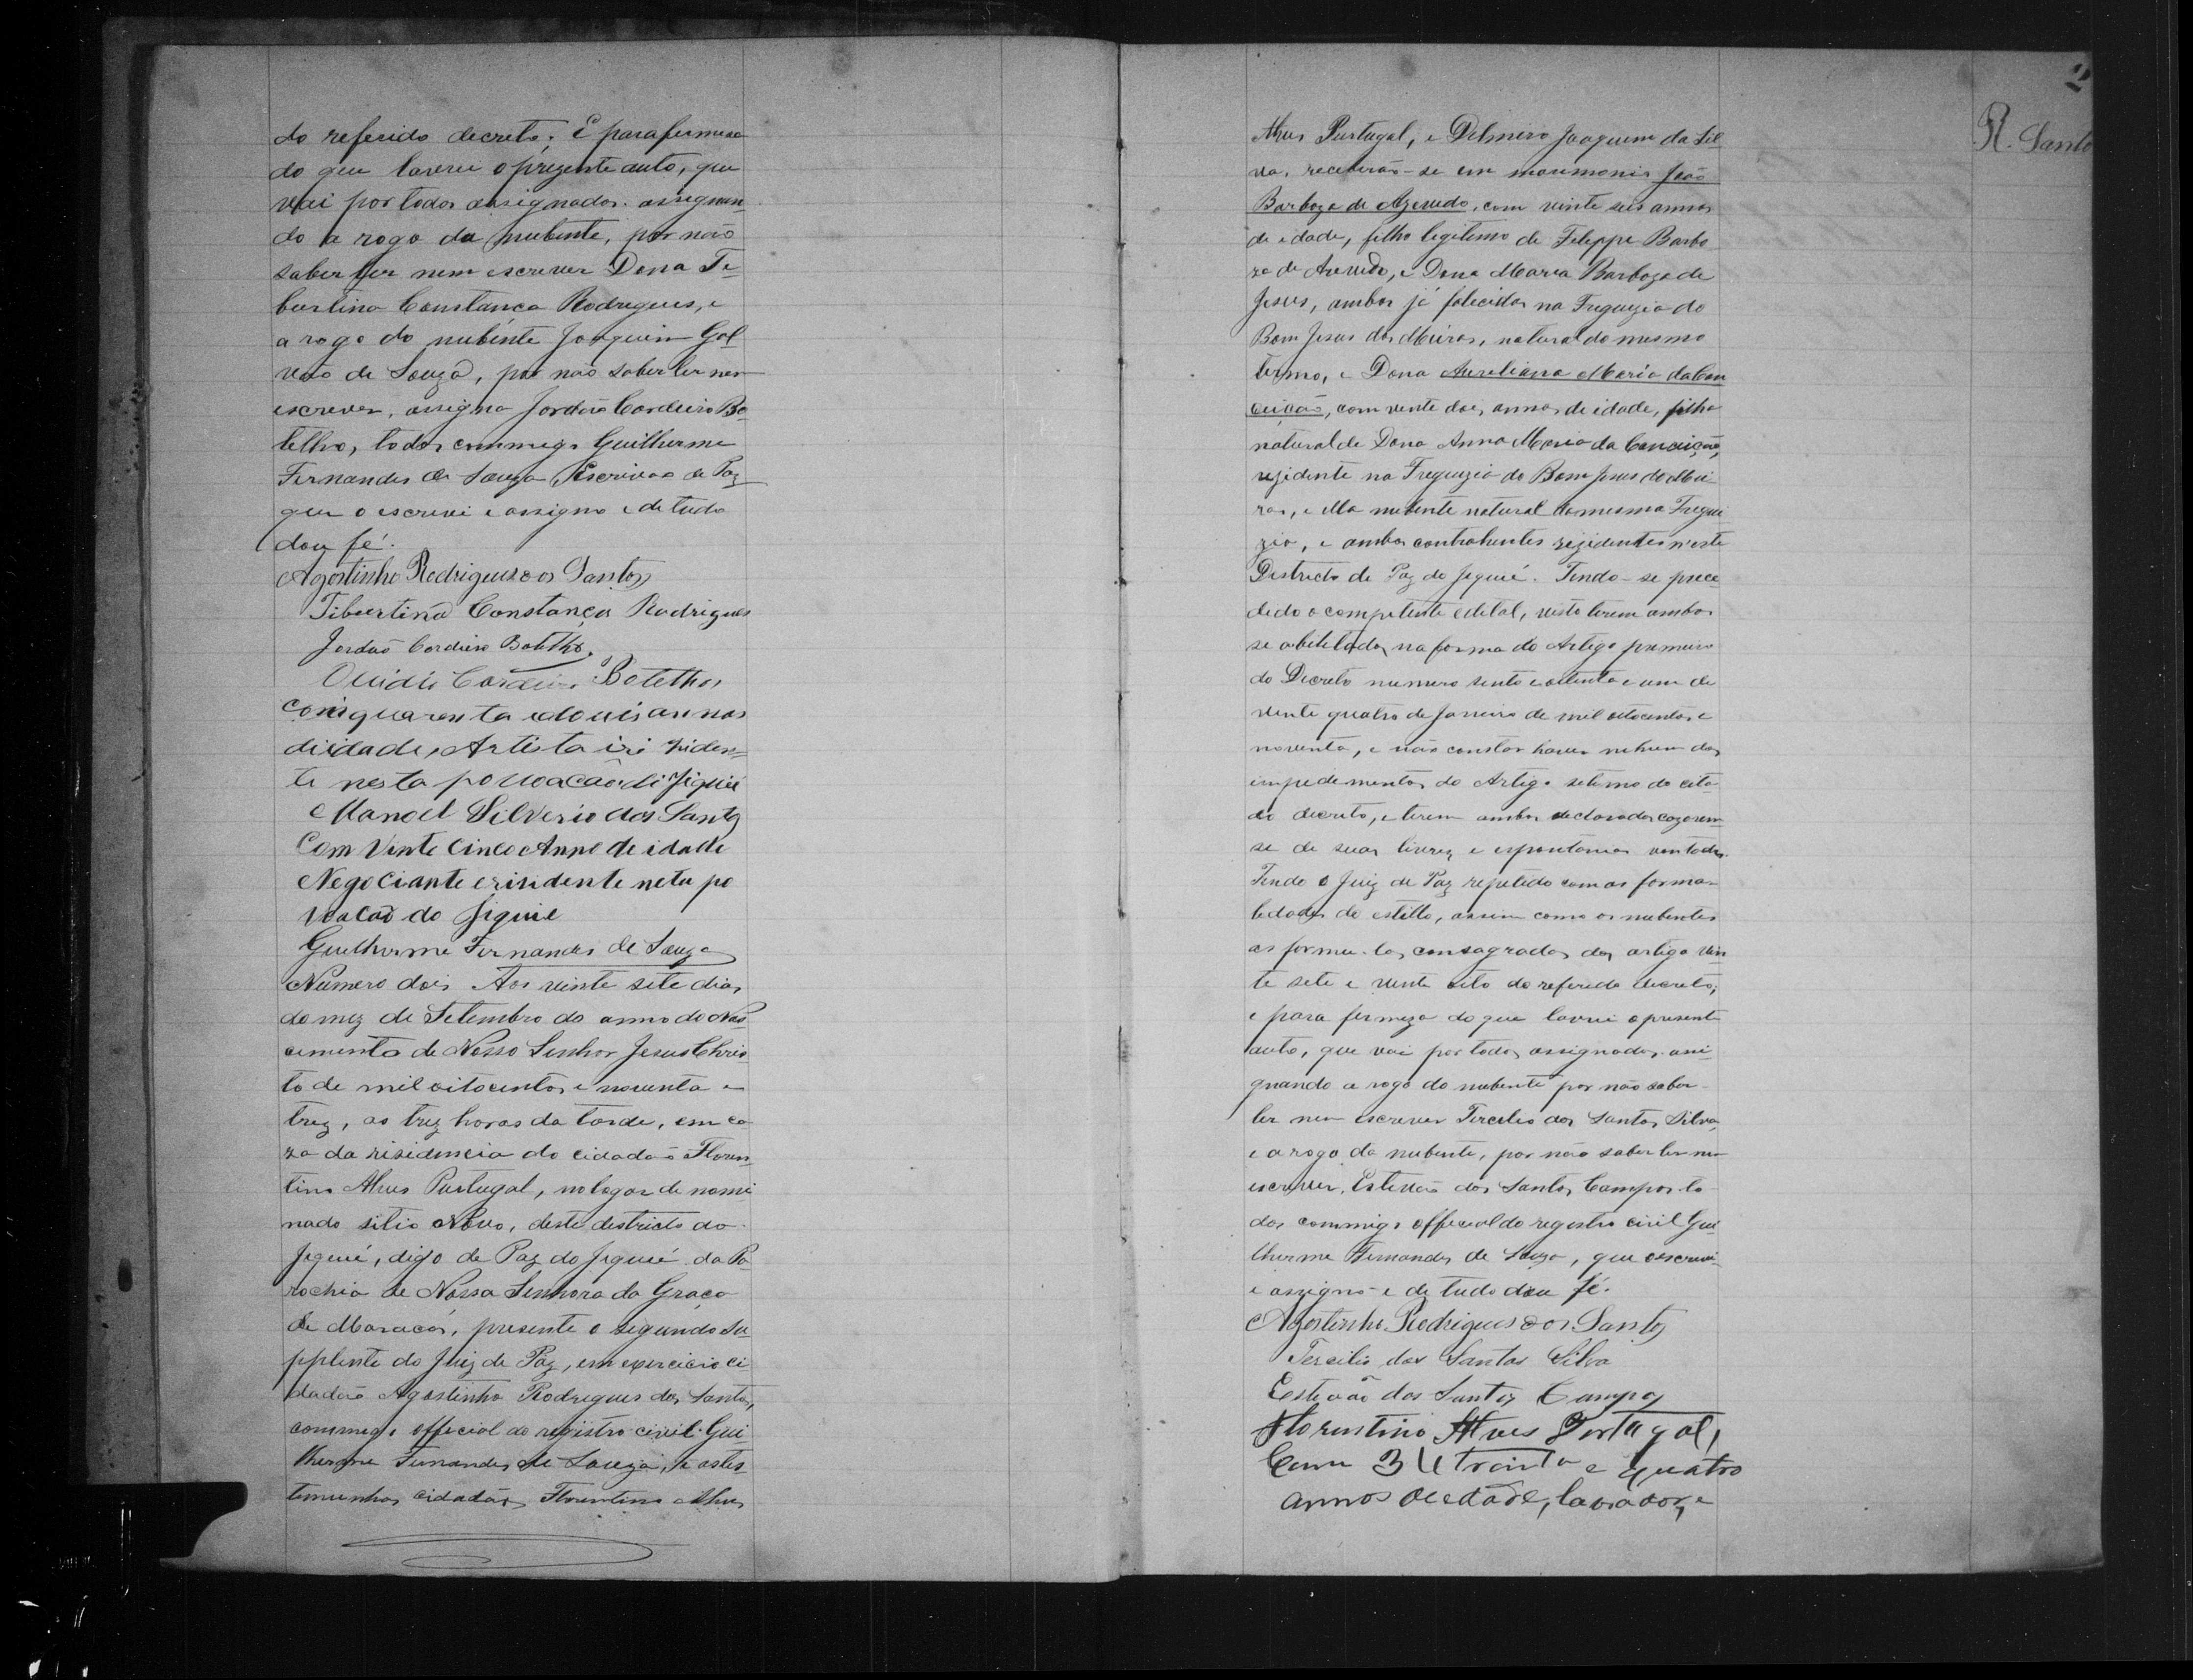 do referido decreto; E para firmesa
do que lavrei o prezente auto, que
vai por todos assignados. assignan-
do a rogo da nubente, por não
saber ler nem escrever Dona Ti-
burtina Constança Rodrigues, e
a rogo do nubente Joaquim Gal
vão de Souza, por não saber ler nem
escrever, assigna Jordão Cordeiro Bo
telho, todos commigo Guilherme
Fernandes de Souza, Escrivão de Paz
que o escrevi e assigno e de tudo
dou fé.
Agostinho Rodrigues dos Santos
Tiburtina Constança Rodrigues
Jordão Cordeiro Botelho.
Ouidio Cordeiro Botelho,
com quarenta e douis annos
di idade, Artista i ri ziden-
te nesta povoacão di Jiquié
Manoel Silverio dos Santos
Com Vinte Cinco Anno de idade
Negociante e risidente neta po
voacão do Jiquié
Guilherme Fernandes de Souza
Numero dois Aos vinte sete dias
do mez de Setembro do anno do Nas
cimento de Nosso Senhor Jesus Chris
to de mil oitocentos e noventa e
trez, as trez horas da tarde, em ca
za da risidencia do cidadão Floren-
tino Alves Purtugal, no logar de nomi
nado sitio Novo, deste districto do
Jequié, digo de Paz do Jequié da Pa-
rochia de Nossa Senhora da Graça
de Maracás, presente o segundo Su
pplente do Juiz de Paz, em exercicio ci
dadão Agostinho Rodrigues dos Santos,
commigo official do registro civil Gui-
lherme Fernandes de Souza, e as tes
temunhas cidadãos Florentino Alves
2
Alves Purtugal, e Delmiro Joaquim da Sil-
va, receberão-se em matrimonio João
Barboza de Azevedo, com vinte seis annos
de idade, filho legitimo de Felippe Barbo
za de Azevedo, e Dona Maria Barboza de
Jesus, ambos já falecidos na Freguezia do
Bom Jesus dos Meiras, natural do mesmo
termo, e Dona Aureliana Maria da Con
ceição, com vente dois annos de idade, filha
natural de Dona Anna Maria da Conceição,
rezidente na Freguezia do Bom Jesus dos Mei-
ras, e ella nubente natural da mesma Fregue
zia, e ambos contrahentes rezidentes n'este
Districto de Paz do Jequié. Tendo-se prece
dido o competente edital, visto terem ambos
se abelitados na forma do Artigo primeiro
do Decreto numero sento e oitenta e um de
vinte quatro de Janeiro de mil oitocentos e
noventa, e não constar haver nehum dos
impedimentos do Artigo setimo do cita-
do decreto, e terem ambos declarados cazarem-
se de suas livres e espontanias vontades.
Tendo o Juiz de Paz repetido com as forma-
lidades do estillo, assim como os nubentes
as formulas consagradas dos artigo vin
te sete e vinte oito do referido decreto,
e para firmeza do que lavrei o presente
auto, que vai por todos assignados. assi-
gnando a rogo do nubente por não saber
ler nem escrever Tercilio dos Santos Silva,
e a rogo da nubente, por não saber ler nem
escrever, Estevão dos Santos Campos to-
dos commigo official do registro civil Gui-
lherme Fernandes de Souza, que o escrevi
e assigno e de tudo dou fé.
Agostinho Rodrigues dos Santos
Tercilio dos Santos Silva
Estevão dos Santos Campos
Florentino Alves Portugal,
Com 34 trinta e quatro
annos de edade, lavrador, e
R. Santo